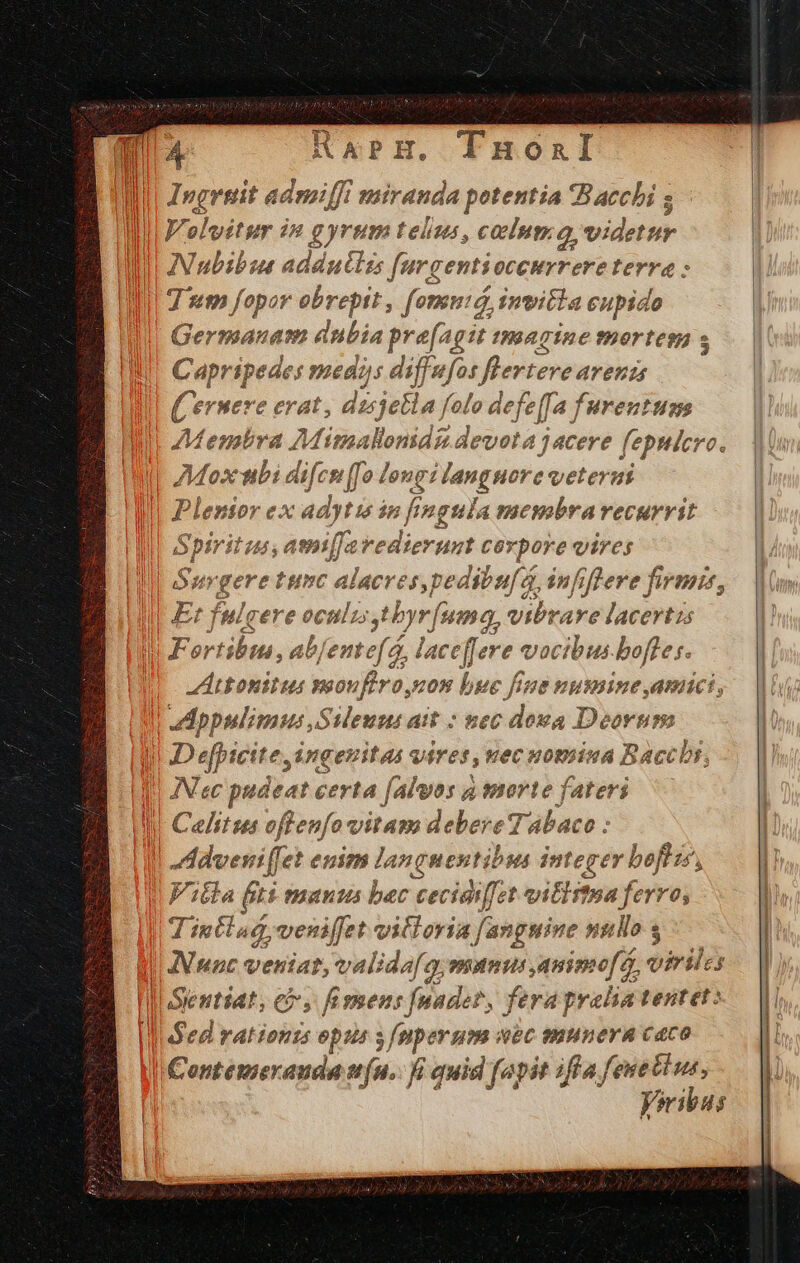 4 RAPH. THORI
Ingruit admissi miranda potentia Bacchi;
Volvitur in gyrum tellus, cælumq́, videtur
Nubibus adductis surgenti occurrere terræ:
Tum sopor obrepit, somniq́, invicta cupido
Germanam dubia præsagit imagine mortem;
Capripedes medijs diffusos stertere arenis
Cernere erat, disjecta solo defessa furentum
Membra Mimallonidũ devota jacere sepulcro.
Mox ubi discusso longi languore veterni
Plenior ex adytis in singula membra recurrit
Spiritus, amissa redierunt corpore vires
Surgere tunc alacres, pedibusq́, insistere firmis,
Et fulgere oculis, thyrsumq́, vibrare lacertis
Fortibus, absentesq́, lacessere vocibus hostes.
Attonitus monstro, non huc sine numine, amici,
Appulimus, Silenus ait: nec dona Deorum
Despicite, ingenitas vires, nec nomina Bacchi,
Nec pudeat certa salvos à morte fateri
Cælitus ostenso vitam debere Tabaco:
Advenisset enim languentibus integer hostis,
Victa siti manus hæc cecidisset victima ferro,
Tinctaq́, venisset victoria sanguine nullo;
Nunc veniat, validasq́, manus, animosq́, viriles
Sentiat, &, si mens suadet, fera prælia tentet:
Sed rationis opus; superum nec munera cæco
Contemeranda usu. si quid sapit ista senectus,
Viribus